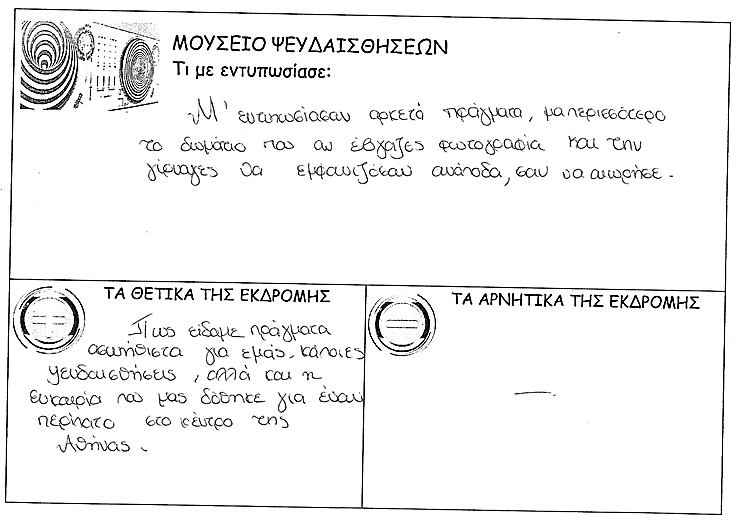 ΜΟΥΣΕΙΟ ΨΕΥΔΑΙΣΘΗΣΕΩΝ
Τι με εντυπωσίασε:
Μ' εντυπωσίασαν αρκετά πράγματα, μα περισσότερο
το δωμάτιο που αν έβγαζες φωτογραφία και την
γύρναγες θα εμφανιζόσουν ανάποδα, σαν να αιωρήσε.
ΤΑ ΘΕΤΙΚΑ ΤΗΣ ΕΚΔΡΟΜΗΣ
Πως είδαμε πράγματα
ασυνήθιστα για εμάς, κάποιες
ψευδαισθήσεις, αλλά και η
ευκαιρία που μας δόθηκε για έναν
περίπατο στο κέντρο της
Αθήνας.
ΤΑ ΑΡΝΗΤΙΚΑ ΤΗΣ ΕΚΔΡΟΜΗΣ
—